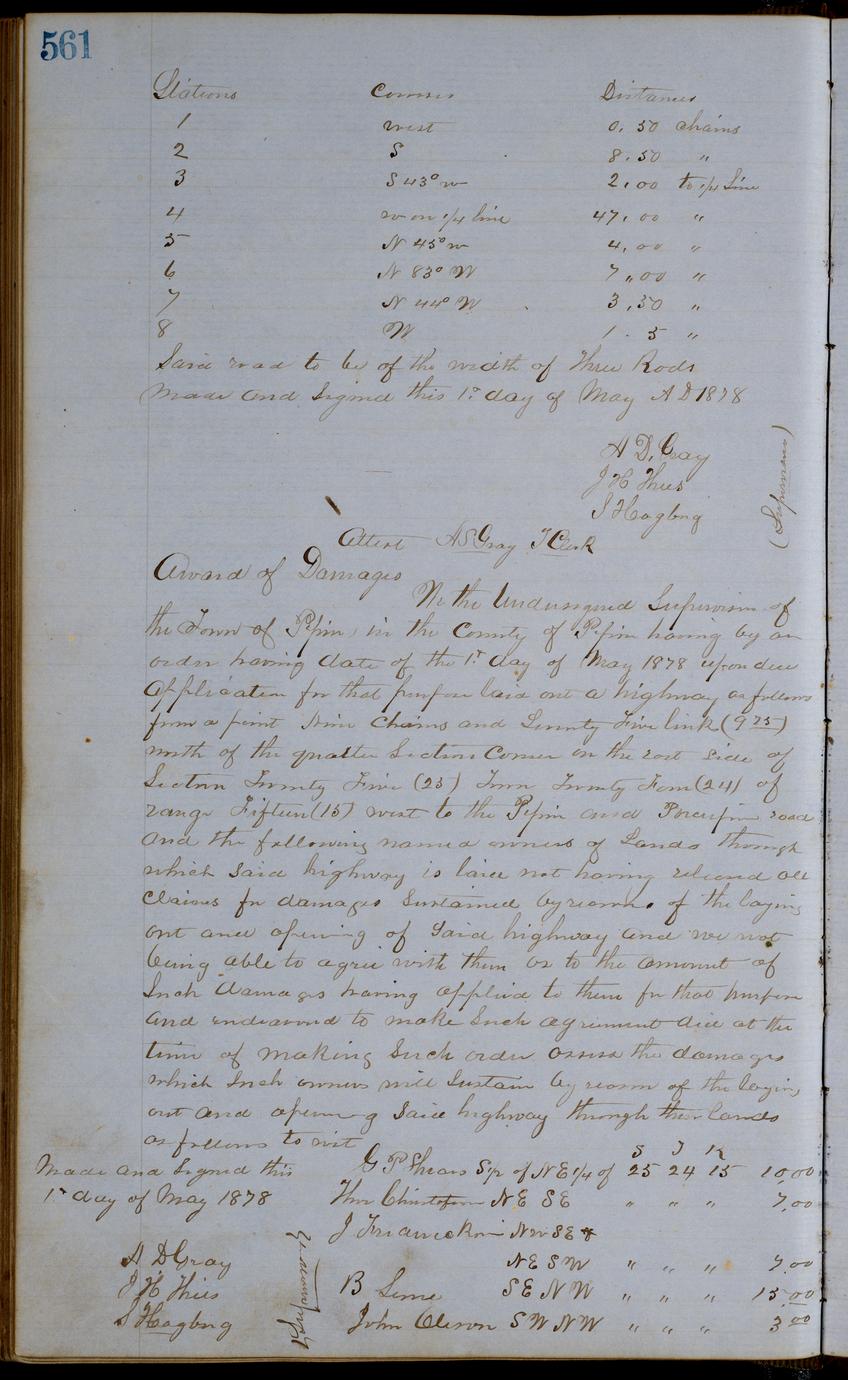 561
Stations Courses Distances
1 west 0.50 chains
2 S 8.50 "
3 S 43° w 2,00 to 1/4 Line
4 w on 1/4 line 47,00 "
5 N 45° w 4,00 "
6 N 83° W 7,00 "
7 N 44° W 3,50 "
8 W 1.5 "
Said road to be of the width of Three Rods
Made and Signed this 1st day of May A D 1878
A D. Gray
J H Thies
S Hagbrg
(Supervisors)
Attest A S Gray T Clerk
Award of Damages
We the Undersigned Supervisors of
the Town of Pepin, in the County of Pepin having by an
order having date of the 1st day of May 1878 upon due
application for that purpose laid out a highway as follows
from a point Nine Chains and Seventy Five link (9 75)
north of the quarter Section Corner on the east side of
Section Twenty Five (25) Town Twenty Four (24) of
range Fifteen (15) west to the Pepin and road
and the following named owners of Lands through
which said highway is laid not having released all
claims for damages Sustained by reason of the laying
out and opening of Said highway and we not
being able to agree with them as to the amount of
Such damages having applied to them for that purpose
and endeavored to make Such agreement did at the
time of making Such order assess the damages
which Such owners will Sustain by reason of the laying
out and opening Said highway through their lands
as follows to wit
S T R
G P Shears S p of N E 1/4 of 25 24 15 10,00
Made and Signed this
1st day of May 1878
Thor N E S E " " " 7,00
J N w S E &
N E S W " " " 7.00
B S E N W " " " 15,00
John Oleson S W N W " " " 3 00
A D Gray
J H Thies
S Hagbrg
Supervisors